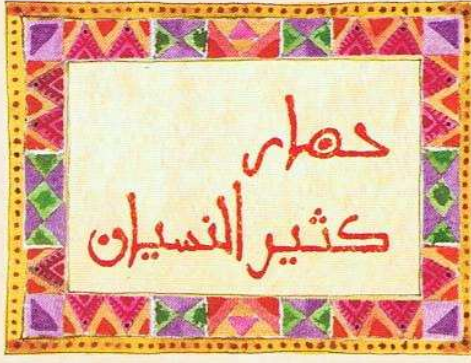 حمار
كثير النسيان